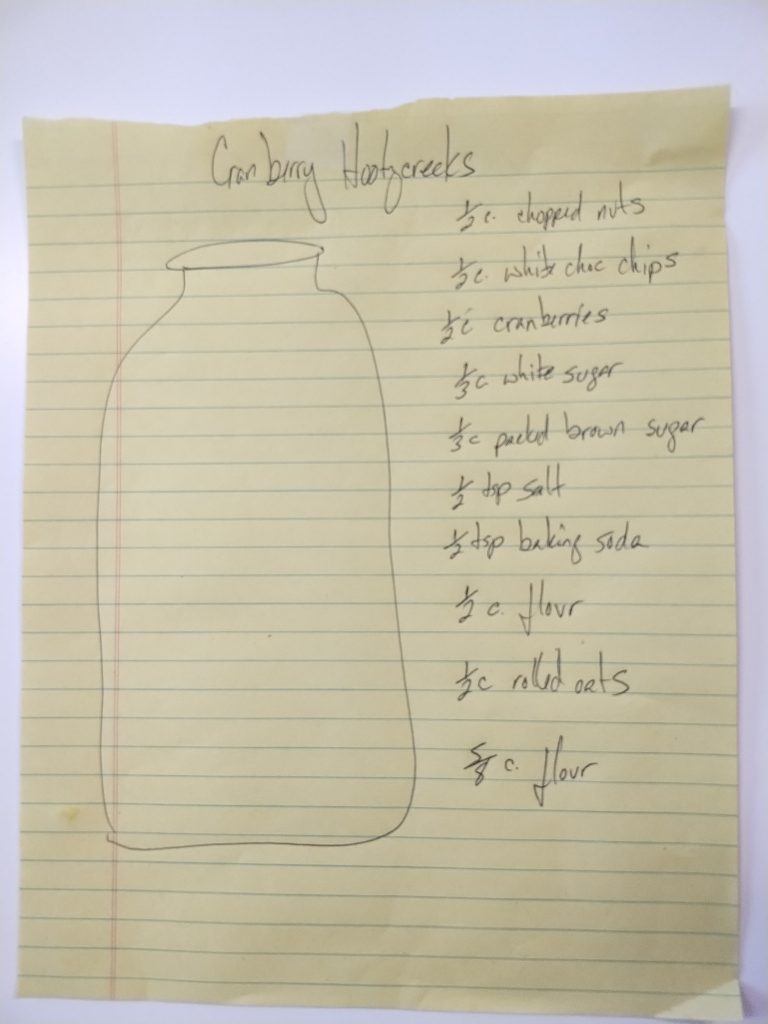 Cranberry Hootycreeks
1/2 c. chopped nuts
1/2 c. white choc chips
1/2 c cranberries
1/3 c white sugar
1/3 c packed brown sugar
1/2 tsp salt
1/2 tsp baking soda
1/2 c. flour
1/2 c rolled oats
5/8 c. flour